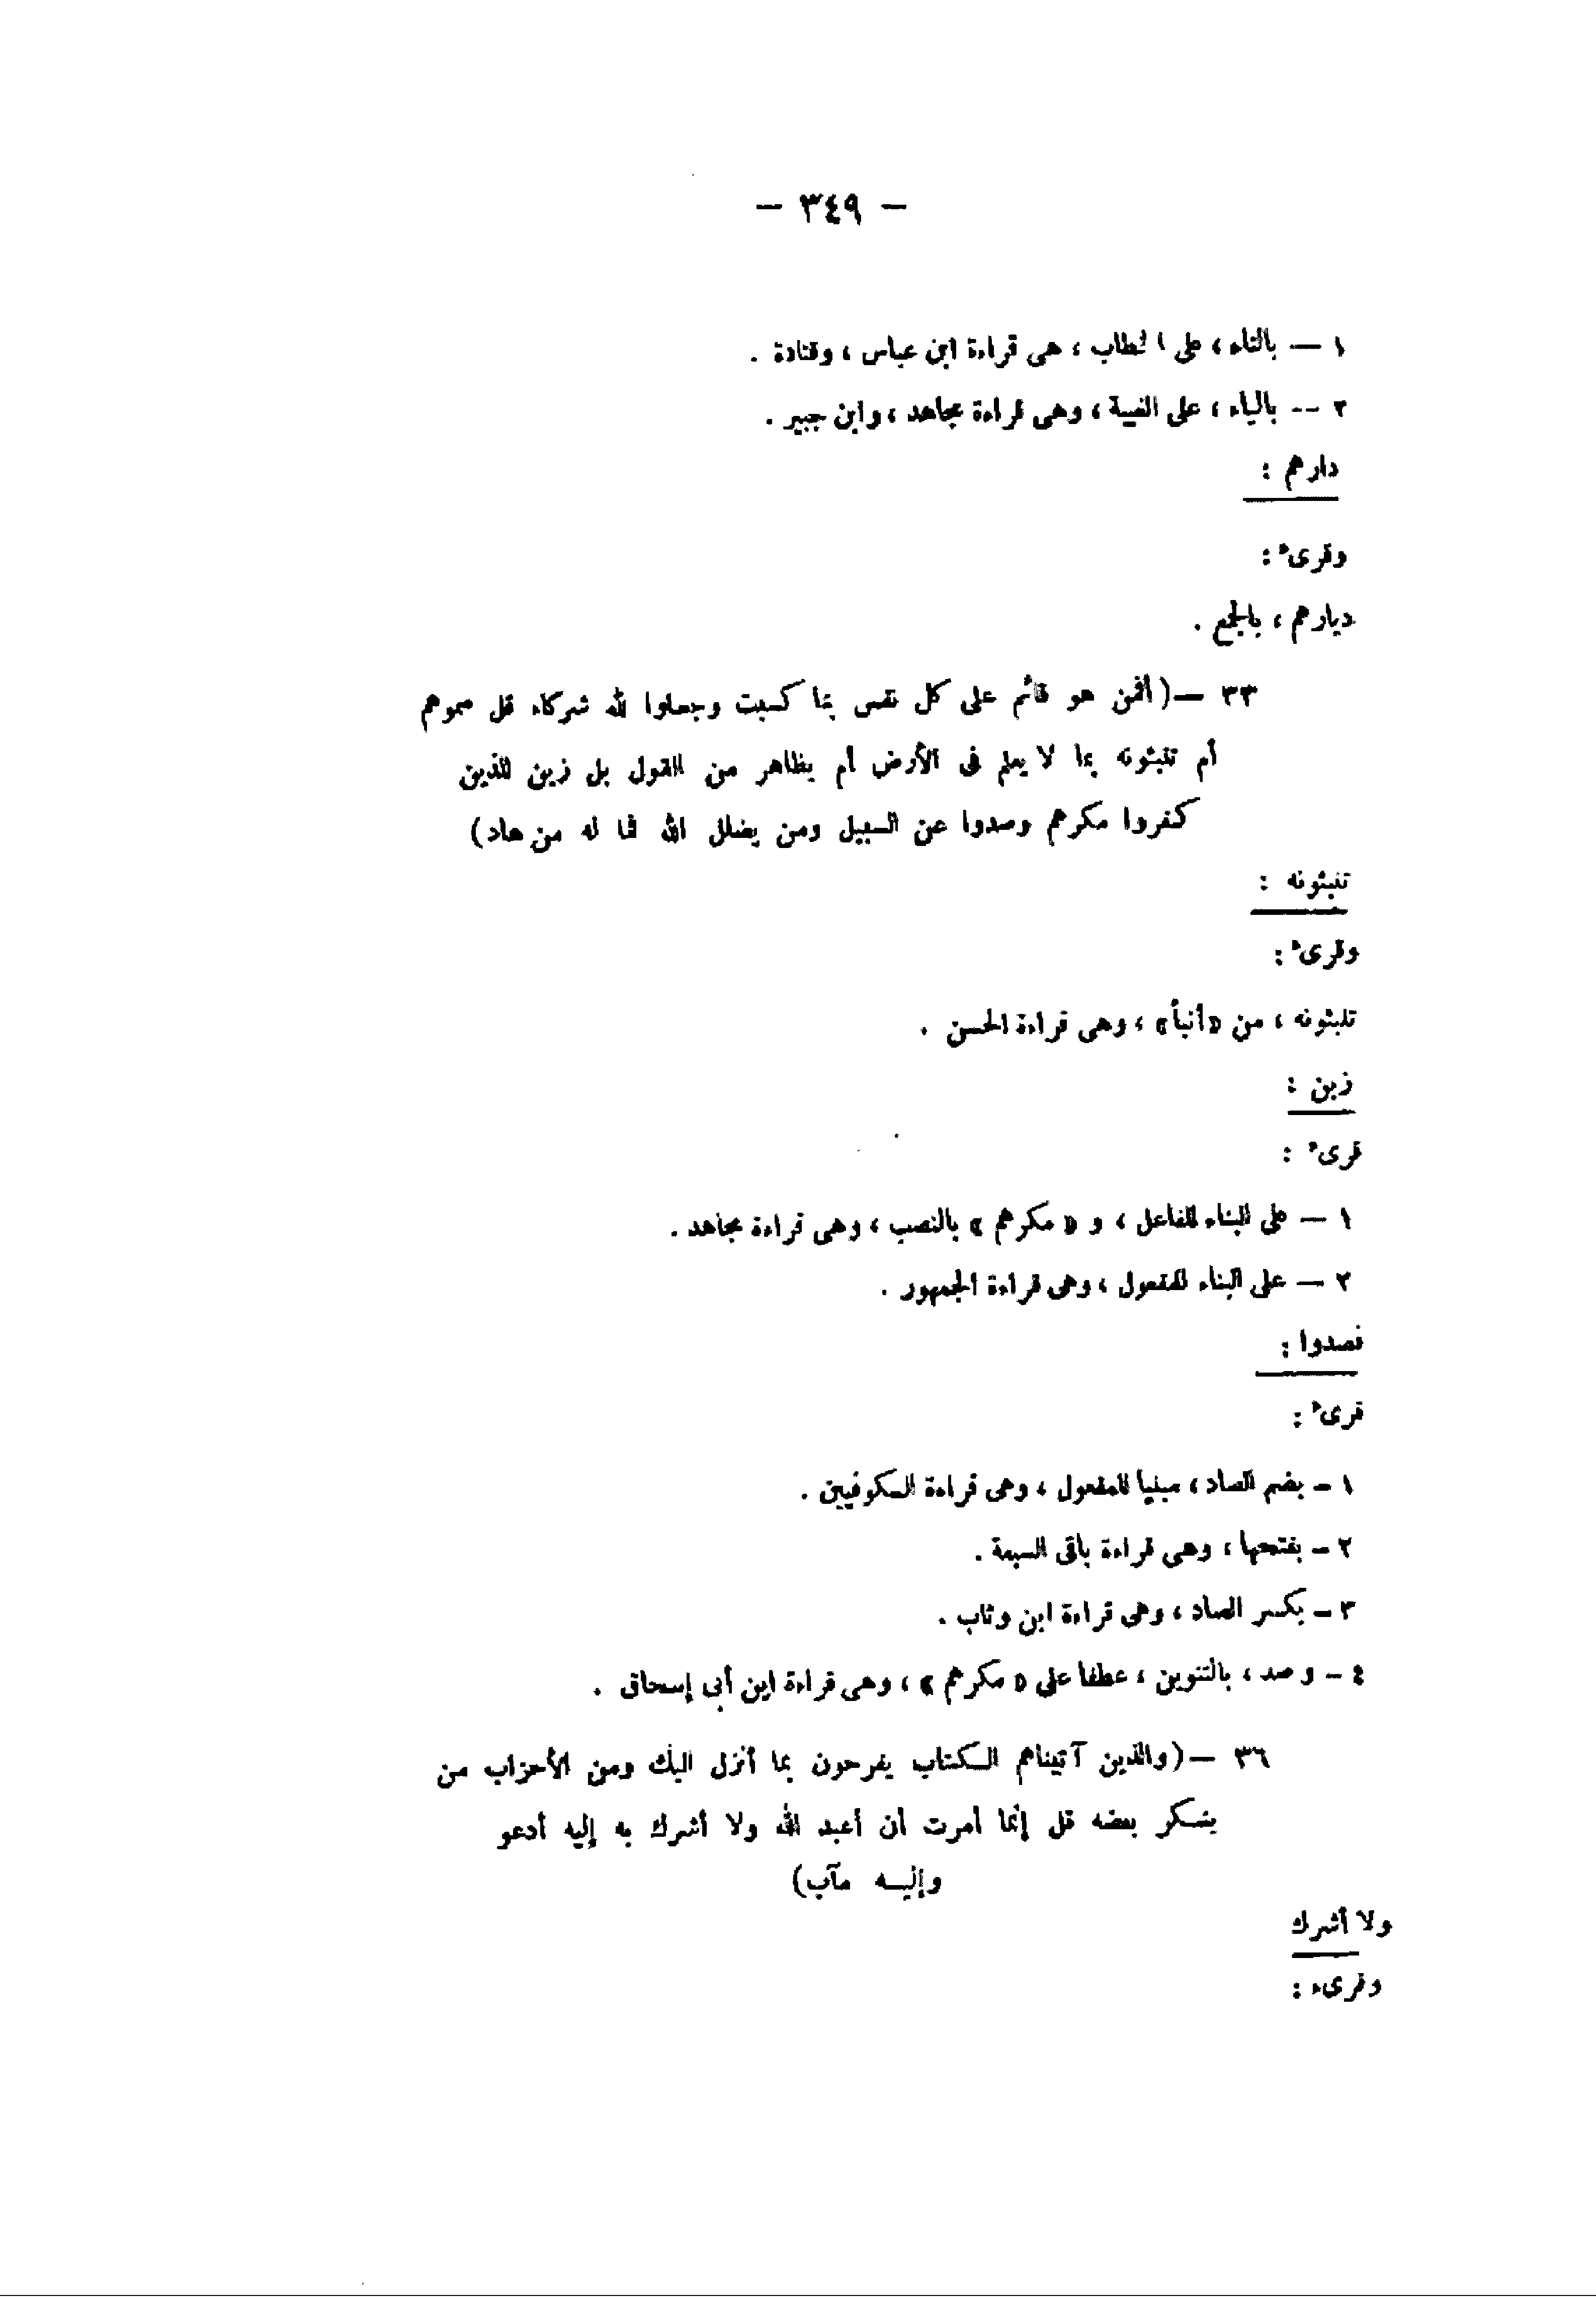 — ٣٤٩ —
١ — بالتاء ، على الخطاب ، هى قراءة ابن عباس ، وقتادة .
٢ -- بالياء ، على الغيبة ، وهى قراءة مجاهد ، وابن جبير .
دارهم :
وقرىء :
ديارهم ، بالجمع .
٣٣ — (أفمن هو قائم على كل نفس بما كسبت وجعلوا لله شركاء قل سموهم
أم تنبئونه بما لا يعلم فى الأرض أم بظاهر من القول بل زين للذين
كفروا مكرهم وصدوا عن السبيل ومن يضلل الله فما له من هاد)
تنبئونه :
وقرىء :
تنبئونه ، من «أنبأ» ، وهى قراءة الحسن .
زين :
قرىء :
١ — على البناء للفاعل ، و « مكرهم » بالنصب ، وهى قراءة مجاهد .
٢ — على البناء للمفعول ، وهى قراءة الجمهور .
فصدوا :
قرىء :
١ - بضم الصاد ، مبنيا للمفعول ، وهى قراءة الكوفيين .
٢ - بفتحها ، وهى قراءة باقى السبعة .
٣ - بكسر الصاد ، وهى قراءة ابن وثاب .
٤ - وصد ، بالتنوين ، عطفا على « مكرهم » ، وهى قراءة ابن أبى إسحاق .
٣٦ — (والذين آتيناهم الكتاب يفرحون بما أنزل اليك ومن الأحزاب من
ينكر بعضه قل إنما أمرت أن أعبد الله ولا أشرك به إليه أدعو
وإليه مآب)
ولا أشرك
وقرىء :